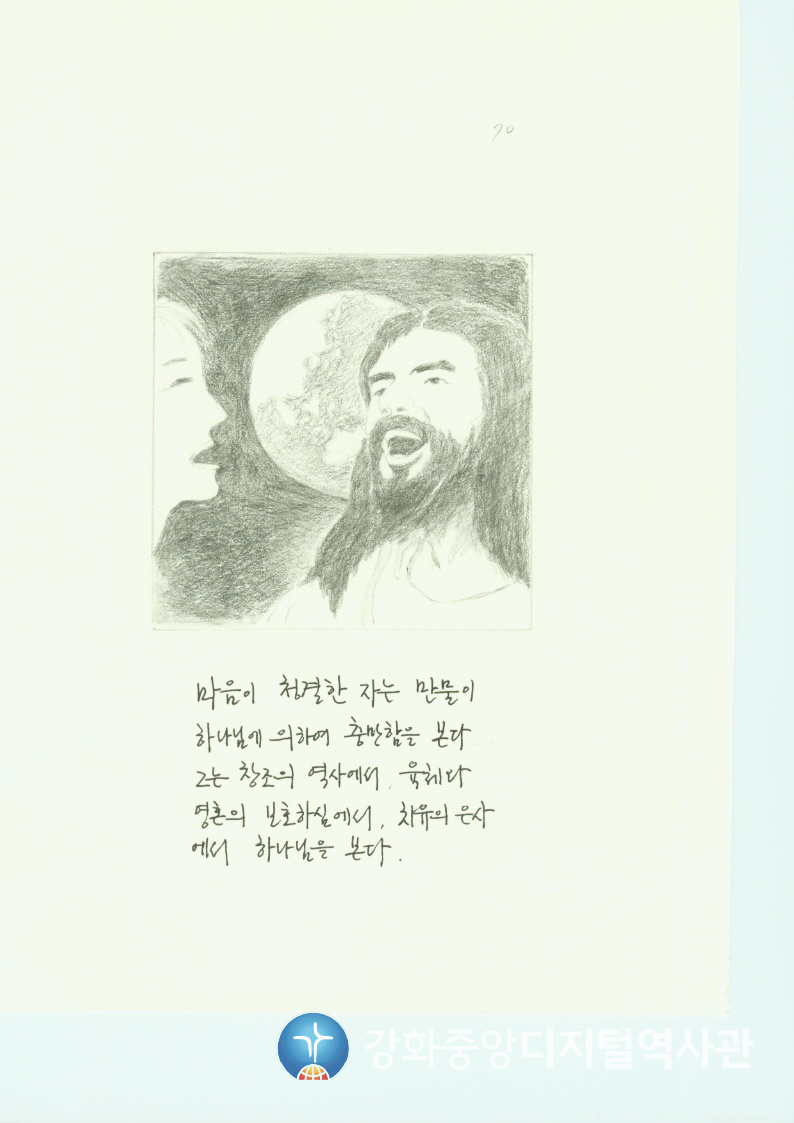 70
마음이 청결한 자는 만물이
하나님에 의하여 충만함을 본다
그는 창조의 역사에서, 육체다
영혼의 보호하심에서, 치유의 은사
에서 하나님을 본다.
강화중앙디지털역사관